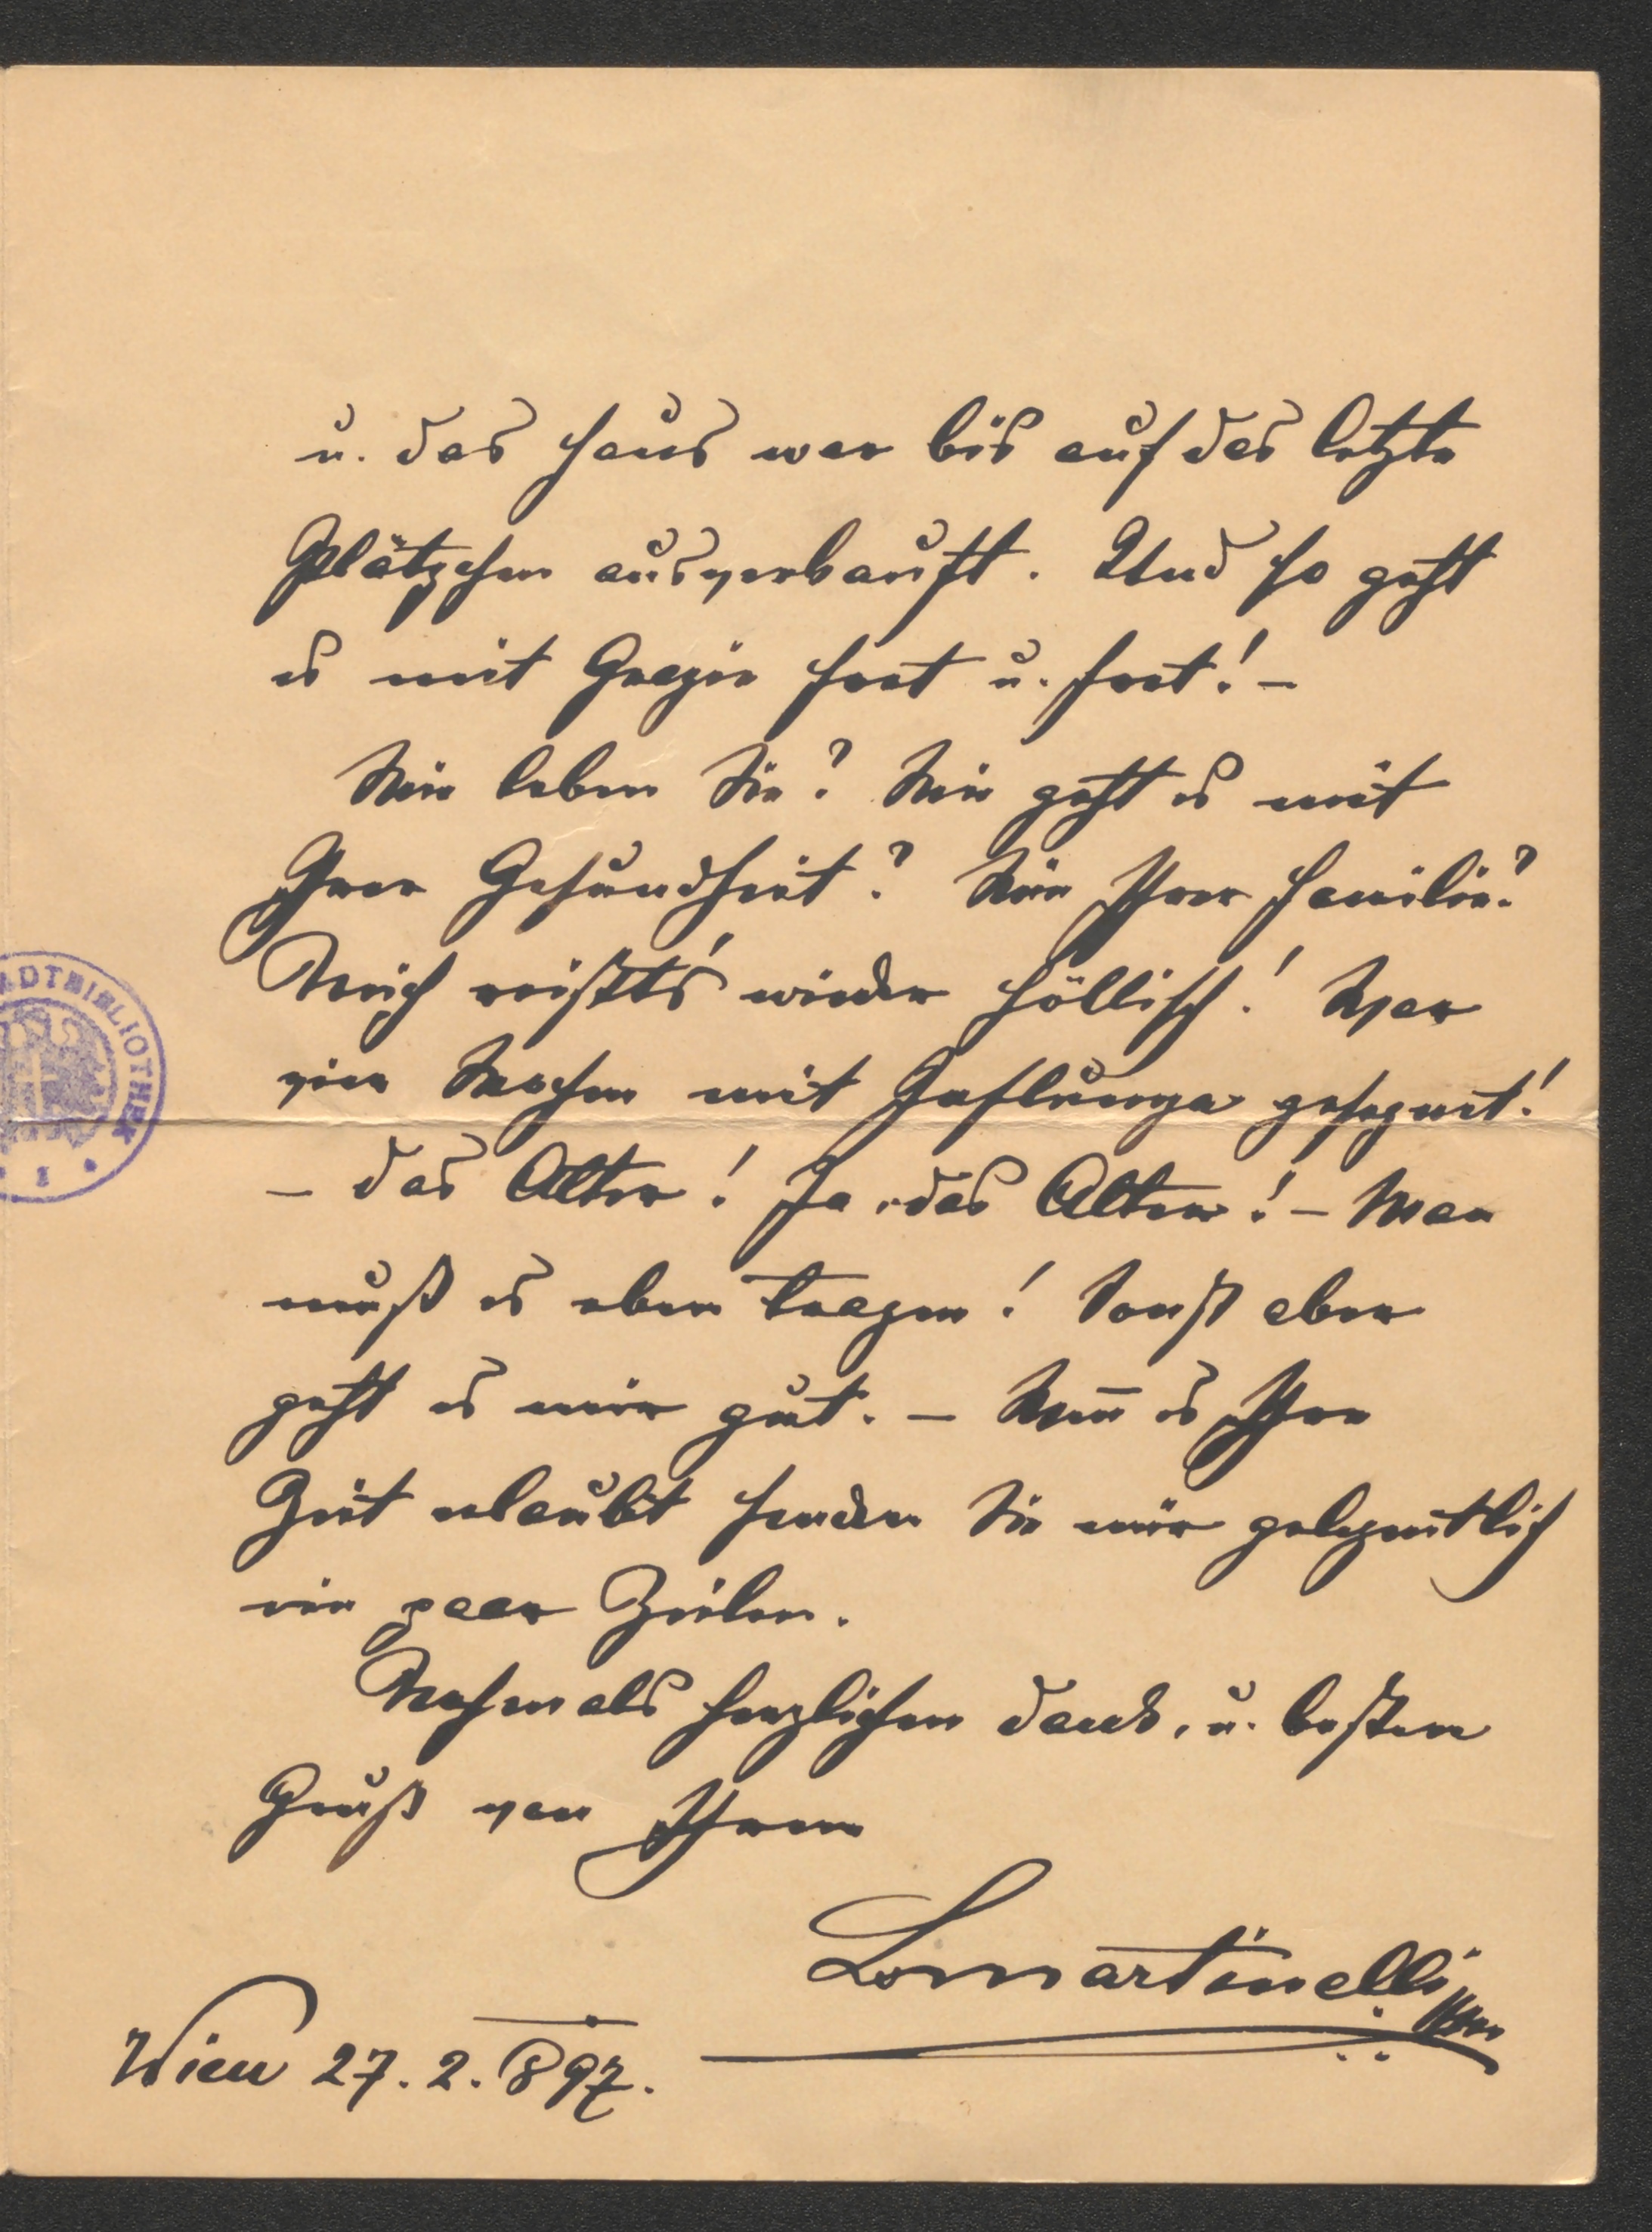 u. das Haus war bis auf das letzte
Plätzchen ausverkauft. Und so geht
es mit Grazie fort u. fort! –
Wie leben Sie? Wie geht es mit
Ihrer Gesundheit? Wie Ihrer Familie?
Mich reißt's wieder höllisch! War
vier Wochen mit gesegnet!
– Das Alter! Ja, das Alter! – Man
muß es eben tragen! Sonst aber
geht es mir gut. – Wen̄ es Ihre
Zeit erlaubt senden Sie mir gelegentlich
ein paar Zeilen.
Nochmals herzlichen Dank, u. besten
Gruß von Ihrem
LMartinelli
Wien 27.2.897.
ADTBIBLIOTHEK